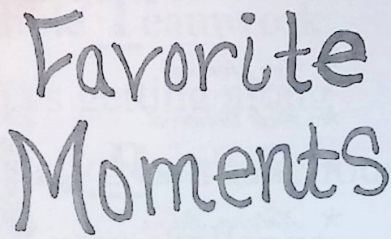 Favorite
Moments